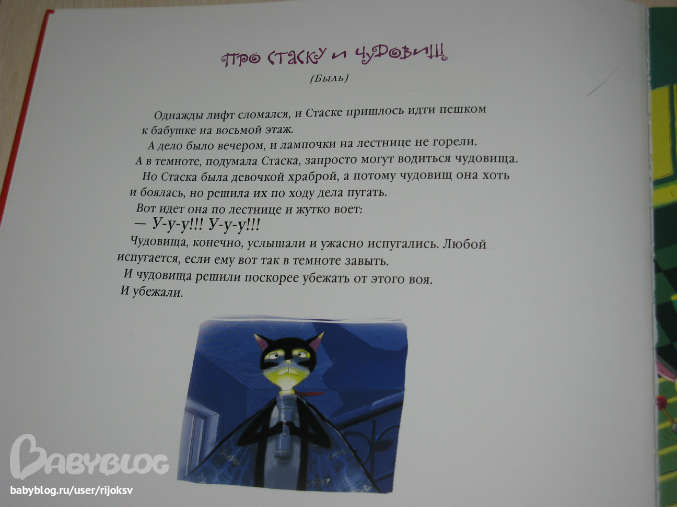 ПРО СТАСКУ И ЧУДОВИЩ
(Быль)
Однажды лифт сломался, и Стаске пришлось идти пешком
к бабушке на восьмой этаж.
А дело было вечером, и лампочки на лестнице не горели.
А в темноте, подумала Стаска, запросто могут водиться чудовища.
Но Стаска была девочкой храброй, а потому чудовищ она хоть
и боялась, но решила их по ходу дела пугать.
Вот идет она по лестнице и жутко воет:
— У-у-у!!! У-у-у!!!
Чудовища, конечно, услышали и ужасно испугались. Любой
испугается, если ему вот так в темноте завыть.
И чудовища решили поскорее убежать от этого воя.
И убежали.
BABYBLOG
babyblog.ru/user/rijoksv